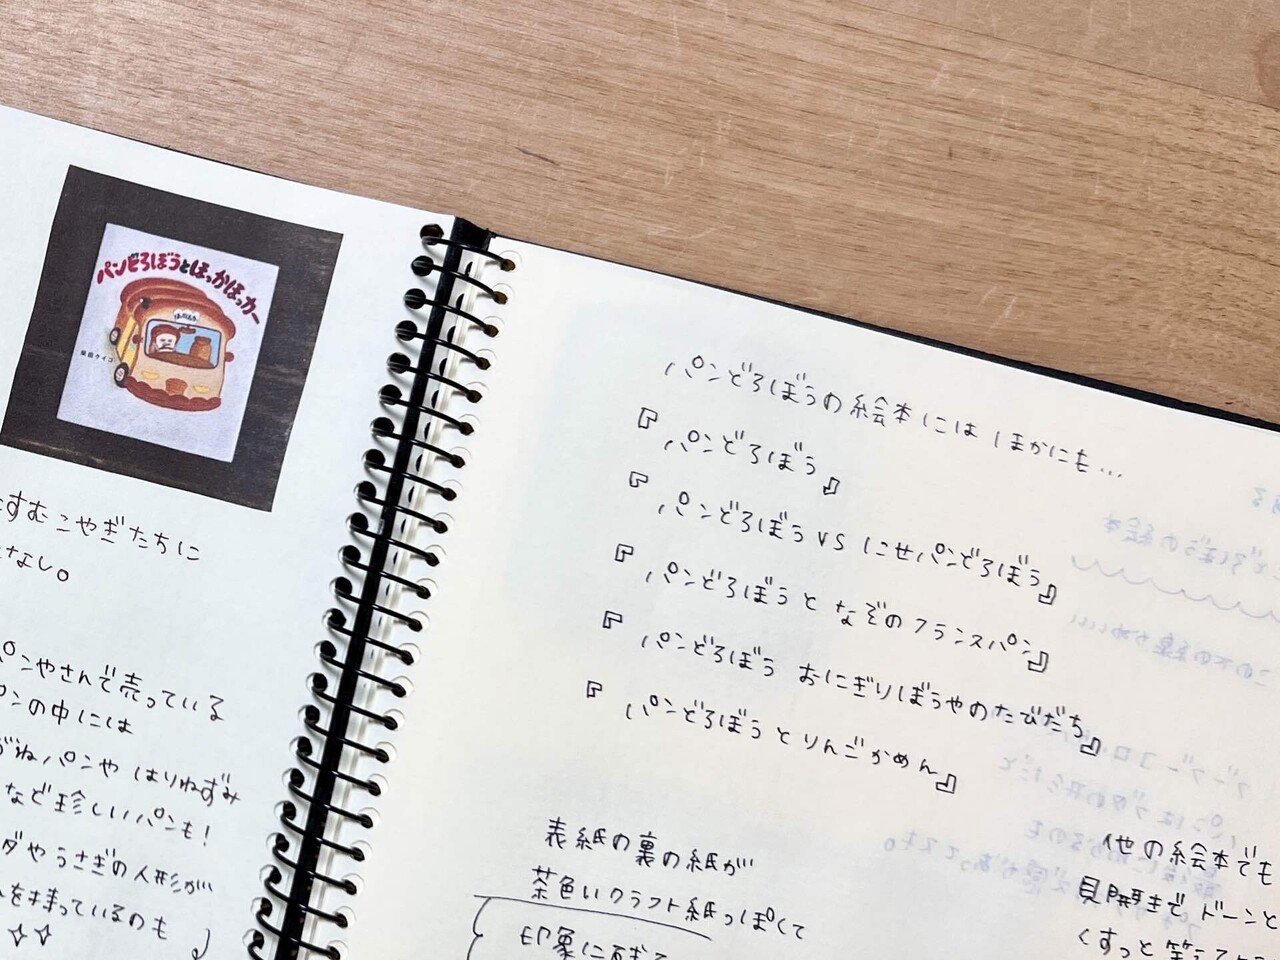 パンどろぼうとほっかほっカー
柴田ケイコ
すむこやぎたちに
なし。
パンやさんで売っている
パンの中には
がねパンや はりねずみ
など珍しいパンも!
ダやうさぎの人形が
を持っているのも
パンどろぼうの絵本には ほかにも…
『パンどろぼう』
『パンどろぼうVSにせパンどろぼう』
『パンどろぼうとなぞのフランスパン』
『パンどろぼう おにぎりぼうやのたびだち』
『パンどろぼうとりんごかめん』
表紙の裏の紙が
茶色いクラフト紙っぽくて
印象にのこる
他の絵本でも
見開きでドーンと
くすっと笑えて